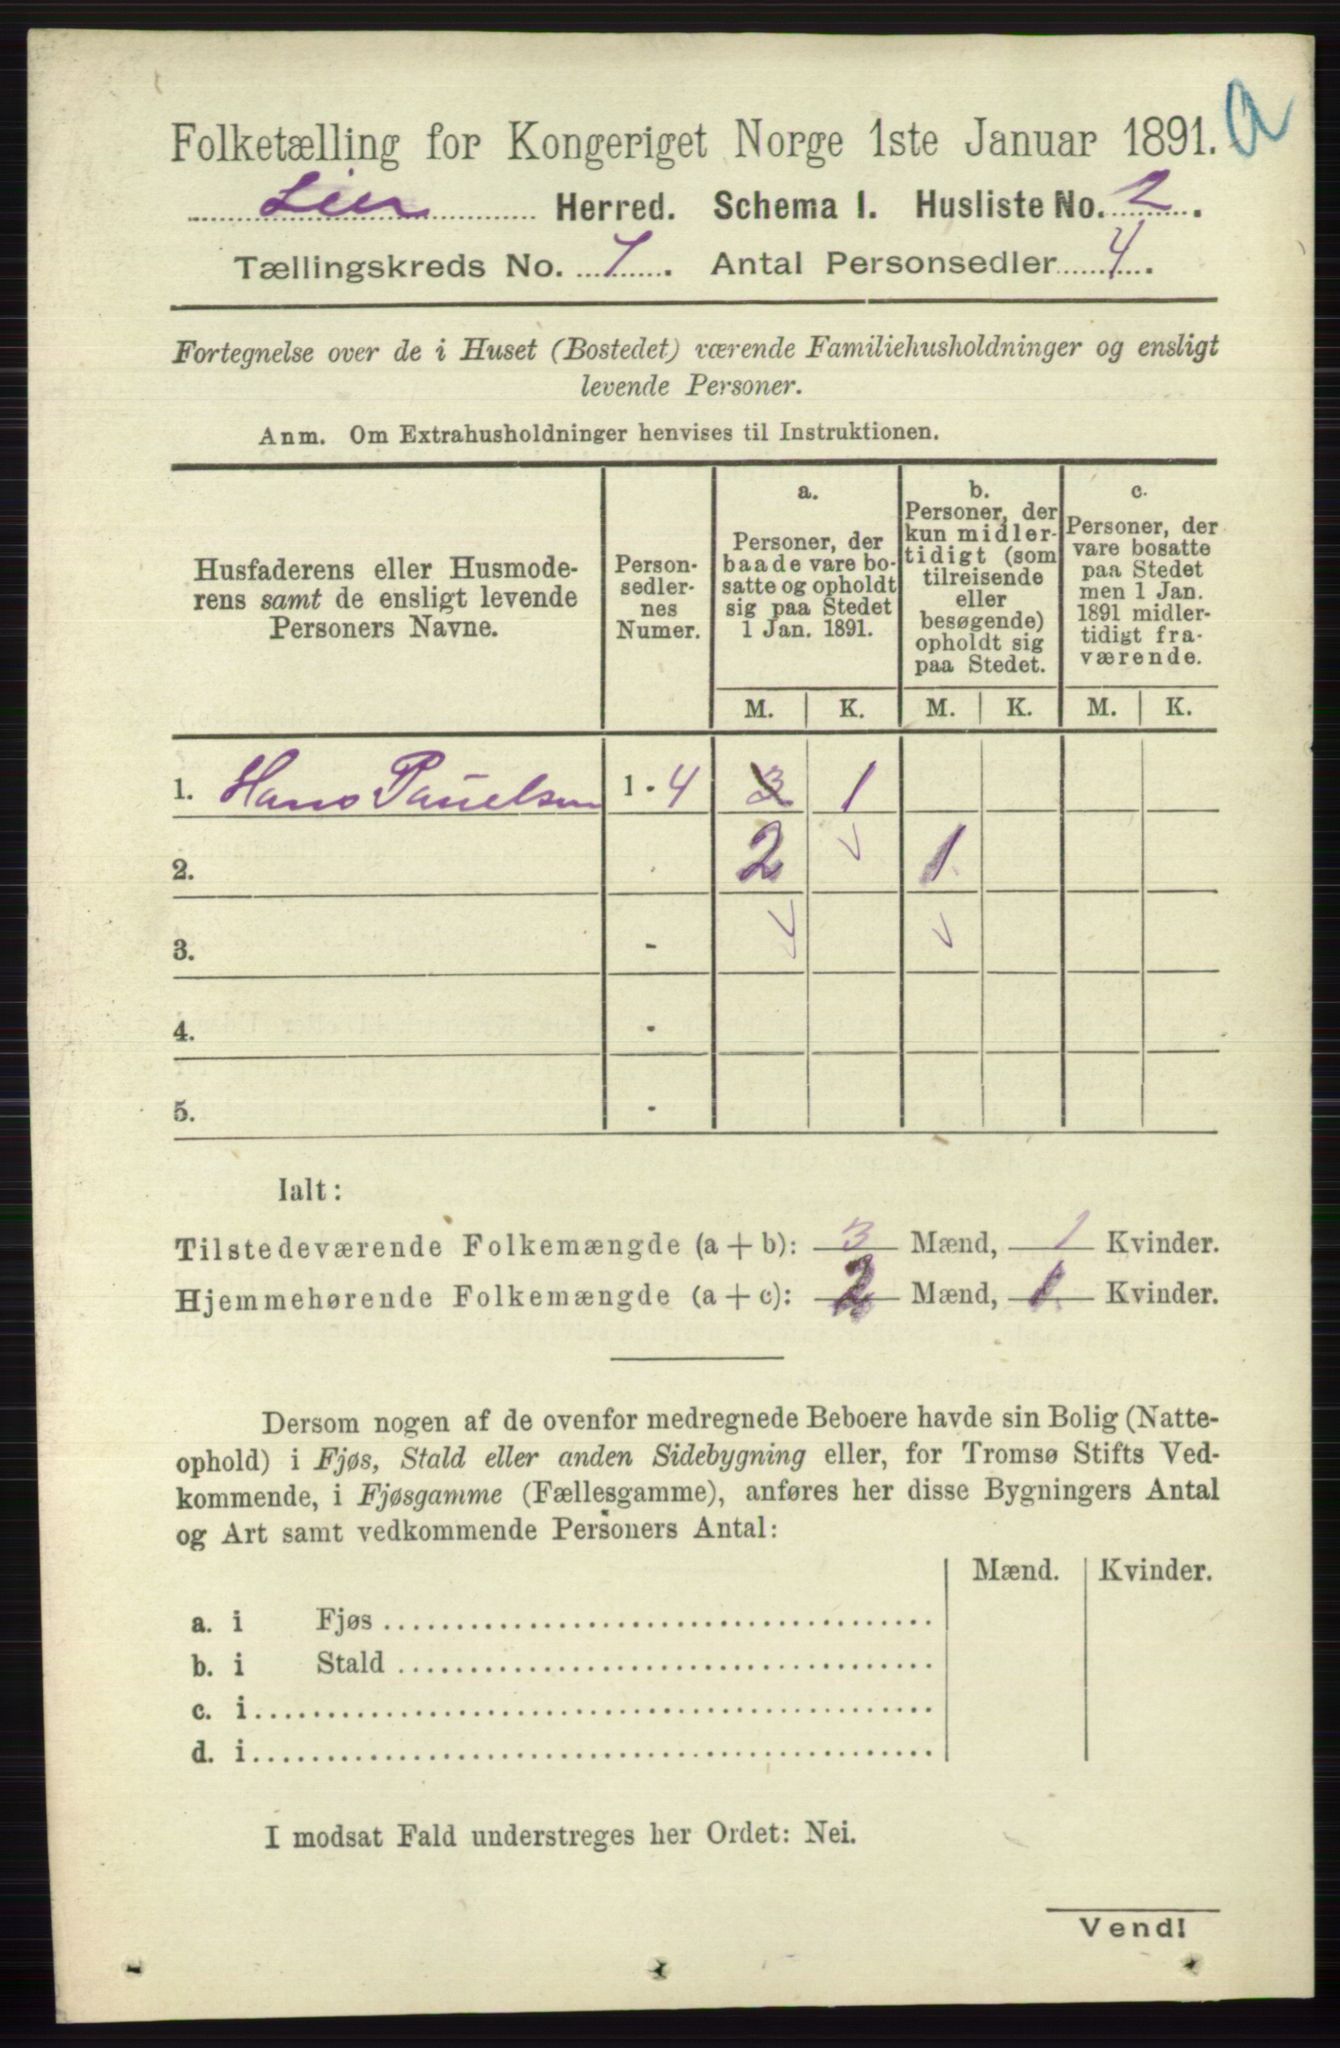 Folketælling for Kongeriget Norge 1ste Januar 1891. a
Lier Herred. Schema I. Husliste No. 2.
Tællingskreds No. 7. Antal Personsedler 4.
Fortegnelse over de i Huset (Bostedet) værende Familiehusholdninger og ensligt
levende Personer.
Anm. Om Extrahusholdninger henvises til Instruktionen.
Husfaderens eller Husmode-
rens samt de ensligt levende
Personers Navne.
Person-
sedler-
nes
Numer.
a.
Personer, der
baade vare bo-
satte og opholdt
sig paa Stedet
1 Jan. 1891.
b.
Personer, der
kun midler-
tidigt (som
tilreisende
eller
besøgende)
opholdt sig
paa Stedet.
c.
Personer, der
vare bosatte
paa Stedet
men 1 Jan.
1891 midler-
tidigt fra-
værende.
M. K. M. K. M. K.
1. Hans Pauelsen 1 - 4 3 1
2. 2 1
3. -
4. -
5. -
Ialt:
Tilstedeværende Folkemængde (a + b): 3 Mænd, 1 Kvinder.
Hjemmehørende Folkemængde (a + c): 2 Mænd, 1 Kvinder.
Dersom nogen af de ovenfor medregnede Beboere havde sin Bolig (Natte-
ophold) i Fjøs, Stald eller anden Sidebygning eller, for Tromsø Stifts Ved-
kommende, i Fjøsgamme (Fællesgamme), anføres her disse Bygningers Antal
og Art samt vedkommende Personers Antal:
Mænd. Kvinder.
a. i Fjøs
b. i Stald
c. i
d. i
I modsat Fald understreges her Ordet: Nei.
Vend!